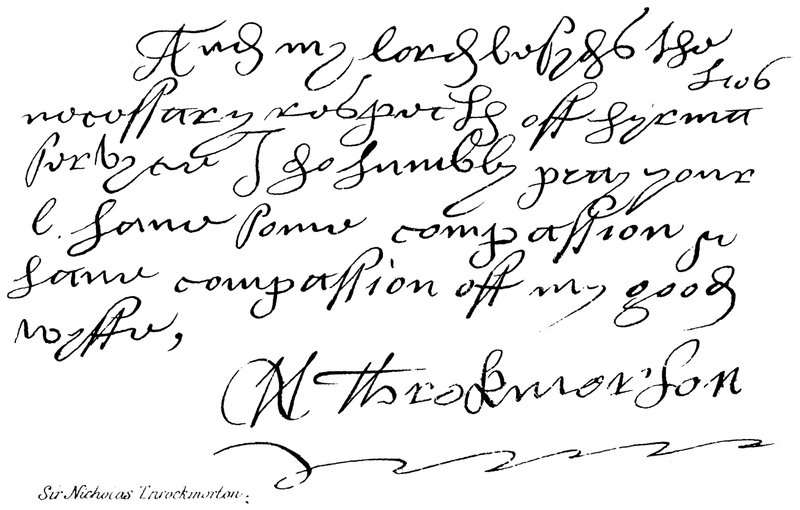 And my lord besyds the
necessary respects off hyr maties
servyce I do humbly pray your
l. have some compassion
have compassion off my good
wyffe,
N Throkmorton
Sir Nicholas Throckmorton.